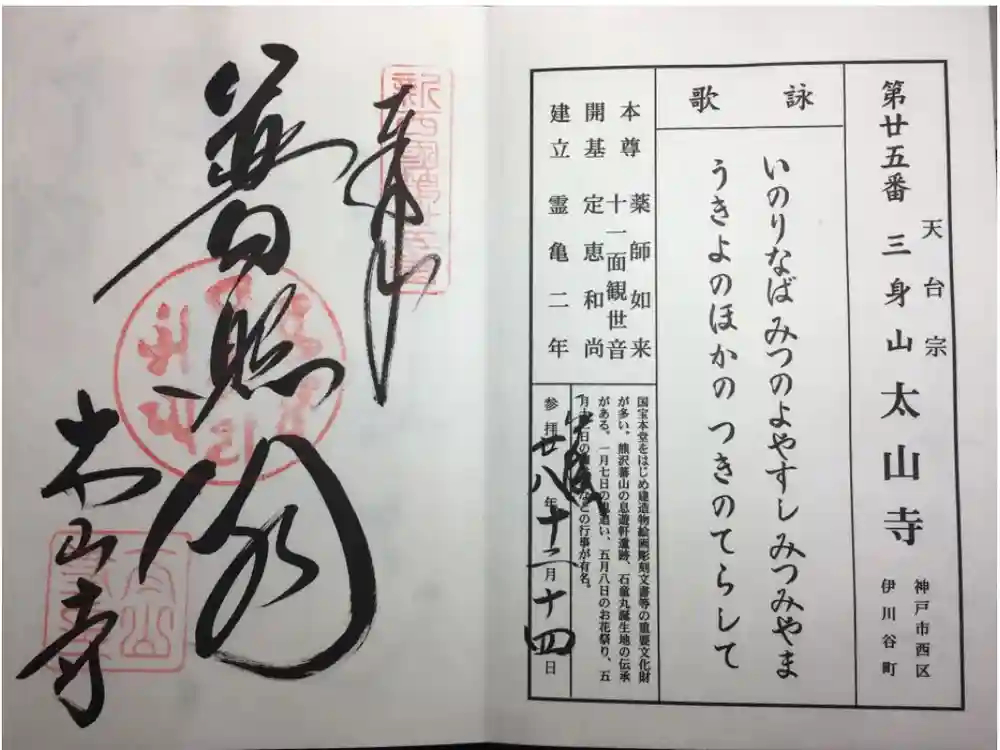 第廿五番 三身山 太山寺
天台宗
神戸市西区
伊川谷町
詠歌
いのりなば みつのよやすし みつみやま
うきよのほかの つきのてらして
本尊 薬師如来
十一面観世音
開基 定恵和尚
建立 霊亀二年
国宝本堂をはじめ建造物絵画彫刻文書等の重要文化財
が多い。熊沢蕃山の息遊軒遺跡、石童丸誕生地の伝承
がある。一月七日の鬼追い、五月八日のお花祭り、五
月十二日の
どの行事が有名。
参拝 廿八年十二月十四日
奉
新四國第廿五番
太山寺